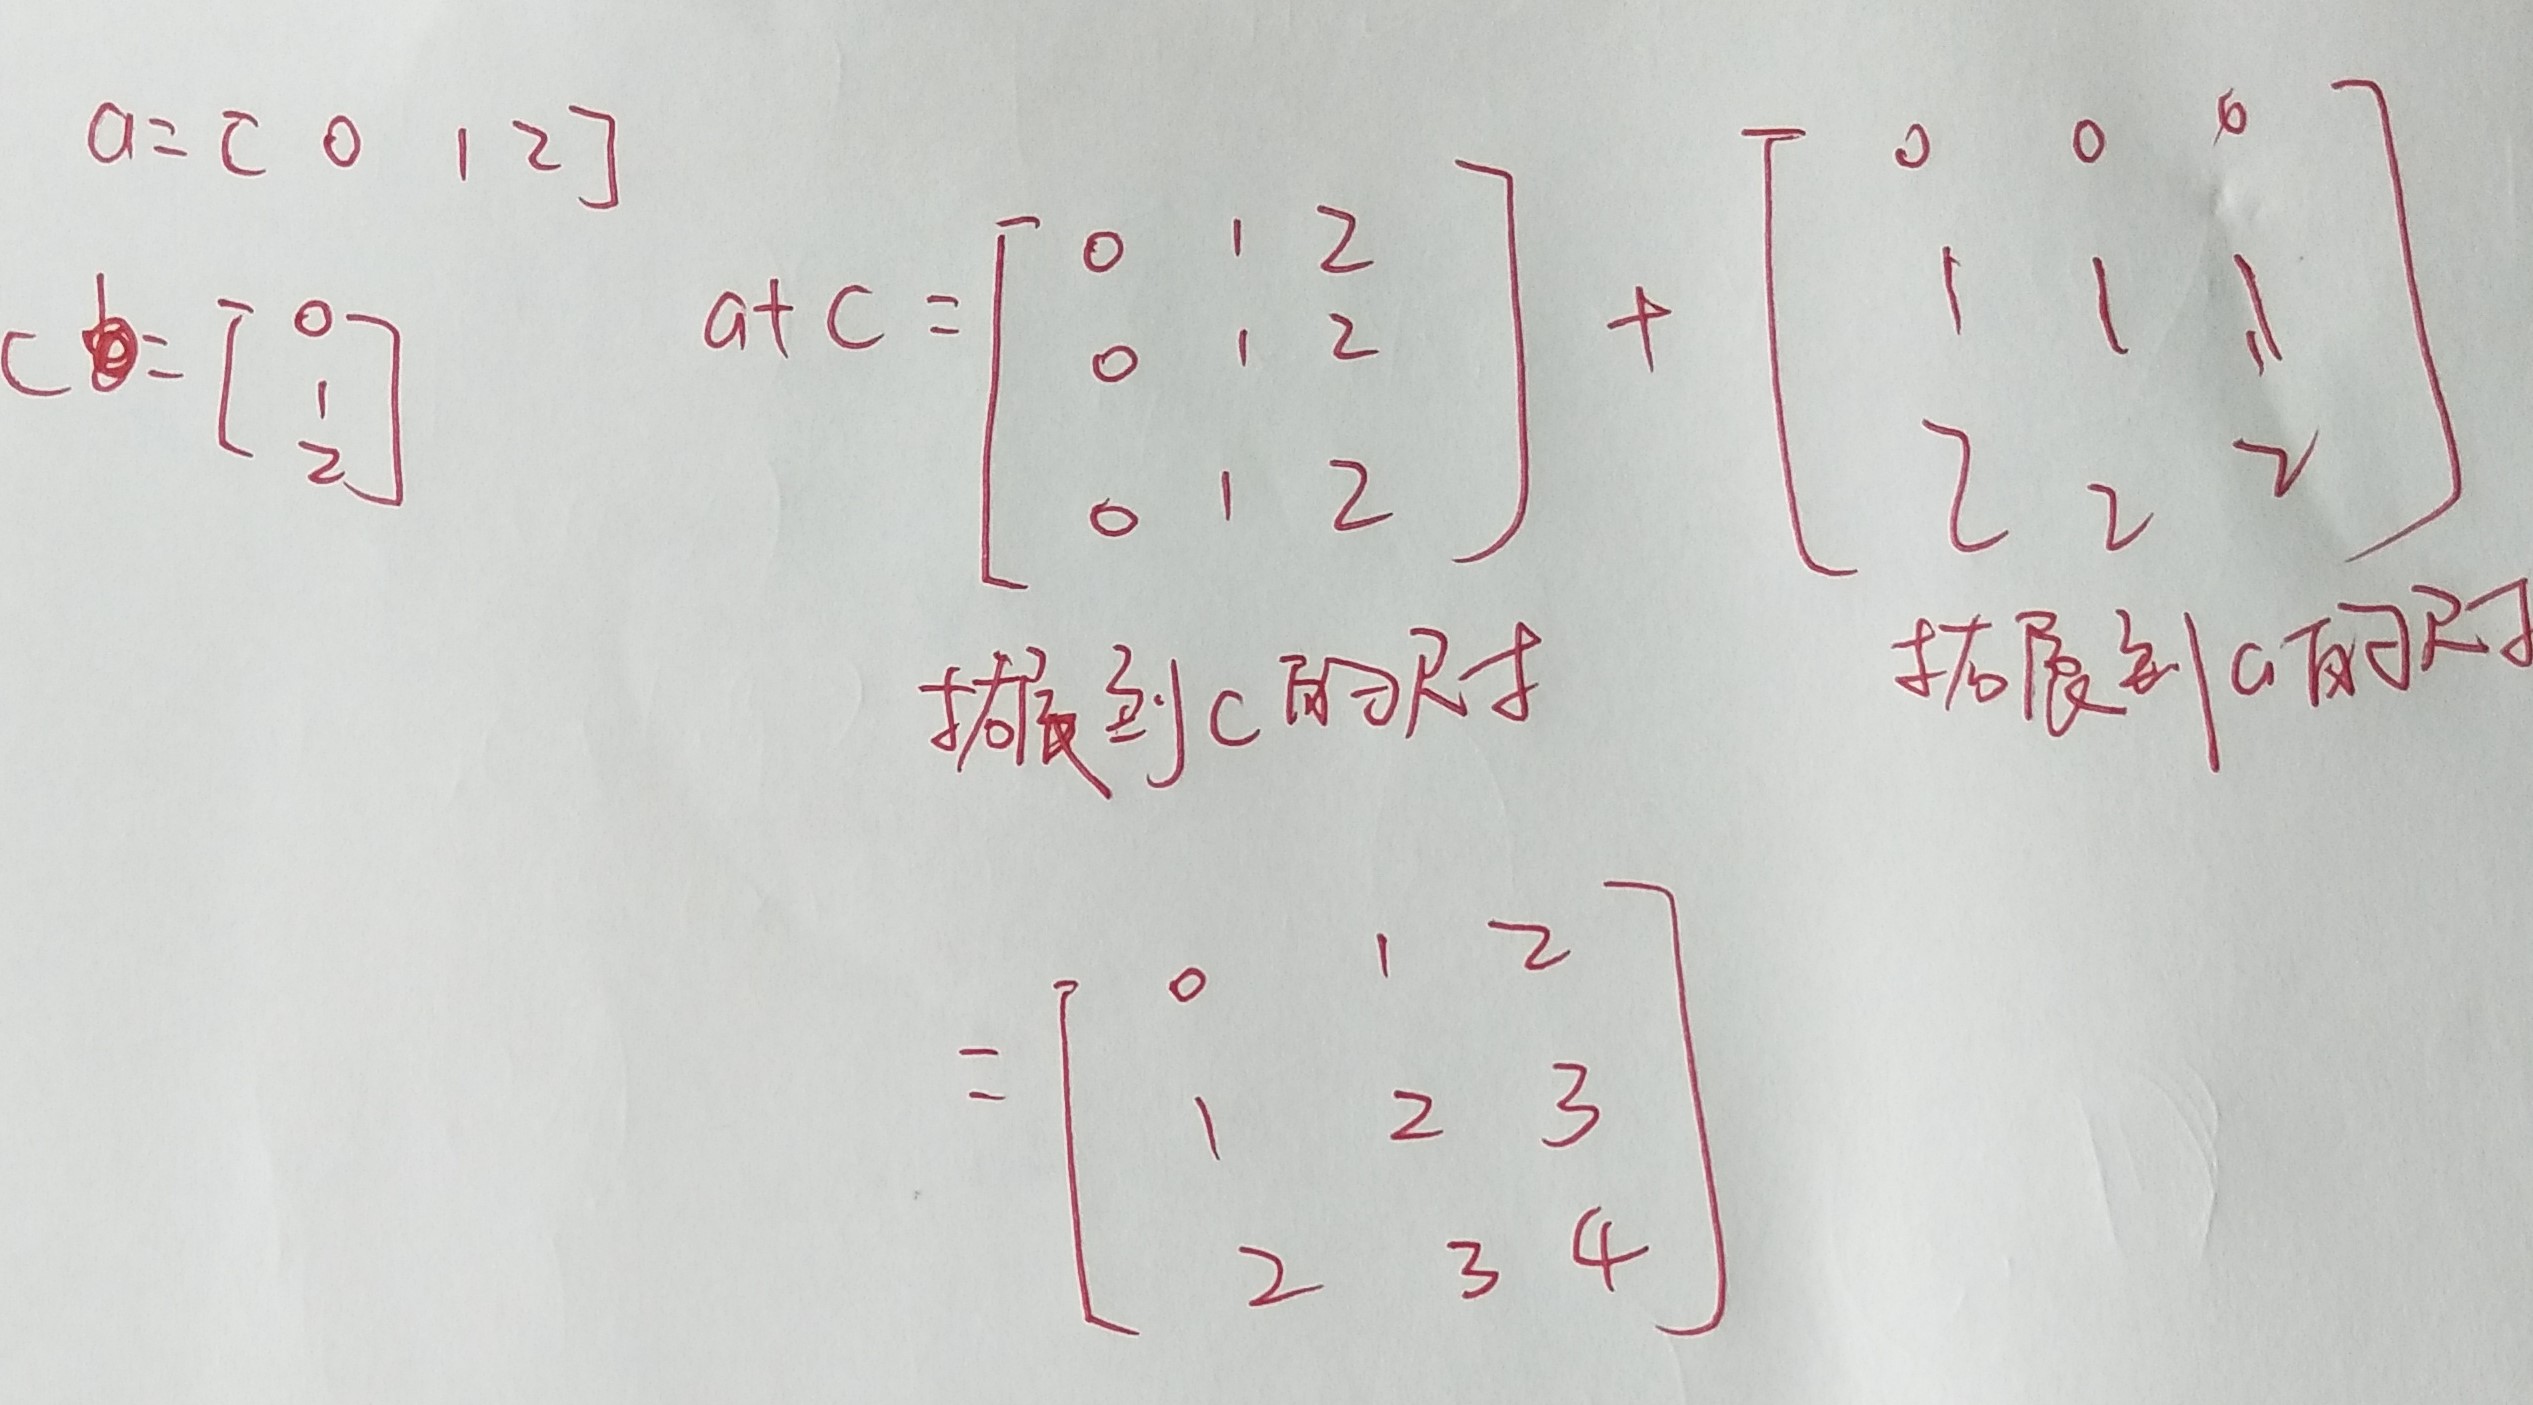 a = [ 0 1 2 ]
c = [ 0
1
2 ]
a + c = [ 0 1 2
0 1 2
0 1 2 ] + [ 0 0 0
1 1 1
2 2 2 ]
拓展到c的尺寸
拓展到a的尺寸
= [ 0 1 2
1 2 3
2 3 4 ]